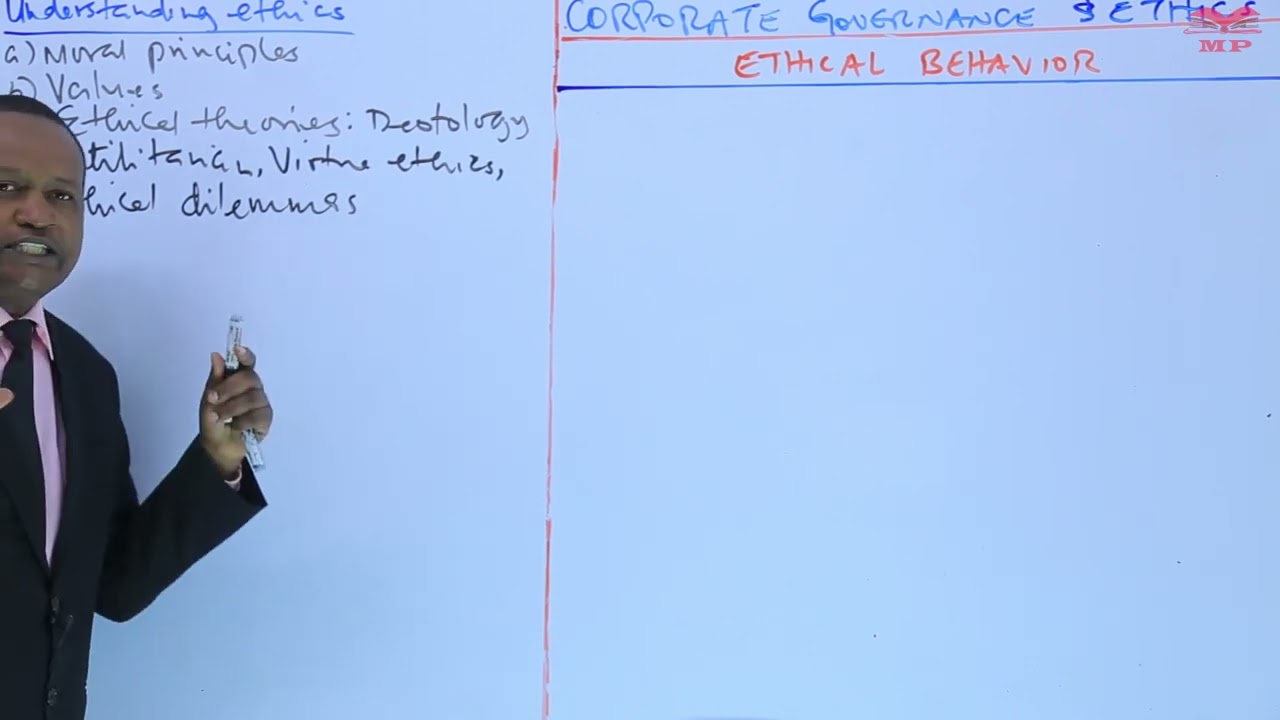 Understanding ethics
a) Moral principles
b) Values
Ethical theories: Deotology
tilitarian, Virtue ethics,
hical dilemmas
CORPORATE GOVERNANCE & ETHICS
ETHICAL BEHAVIOR
MP